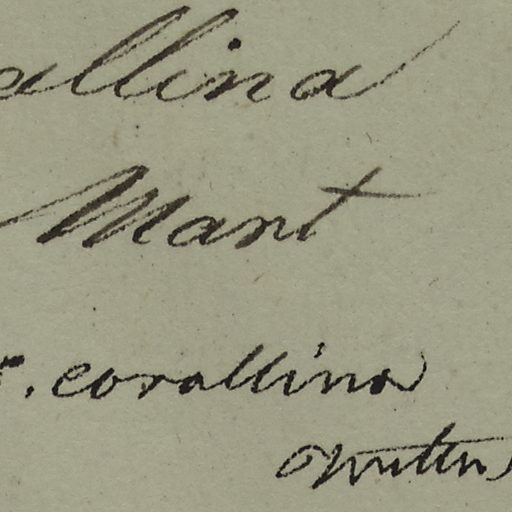 allina
Mant
. corallina